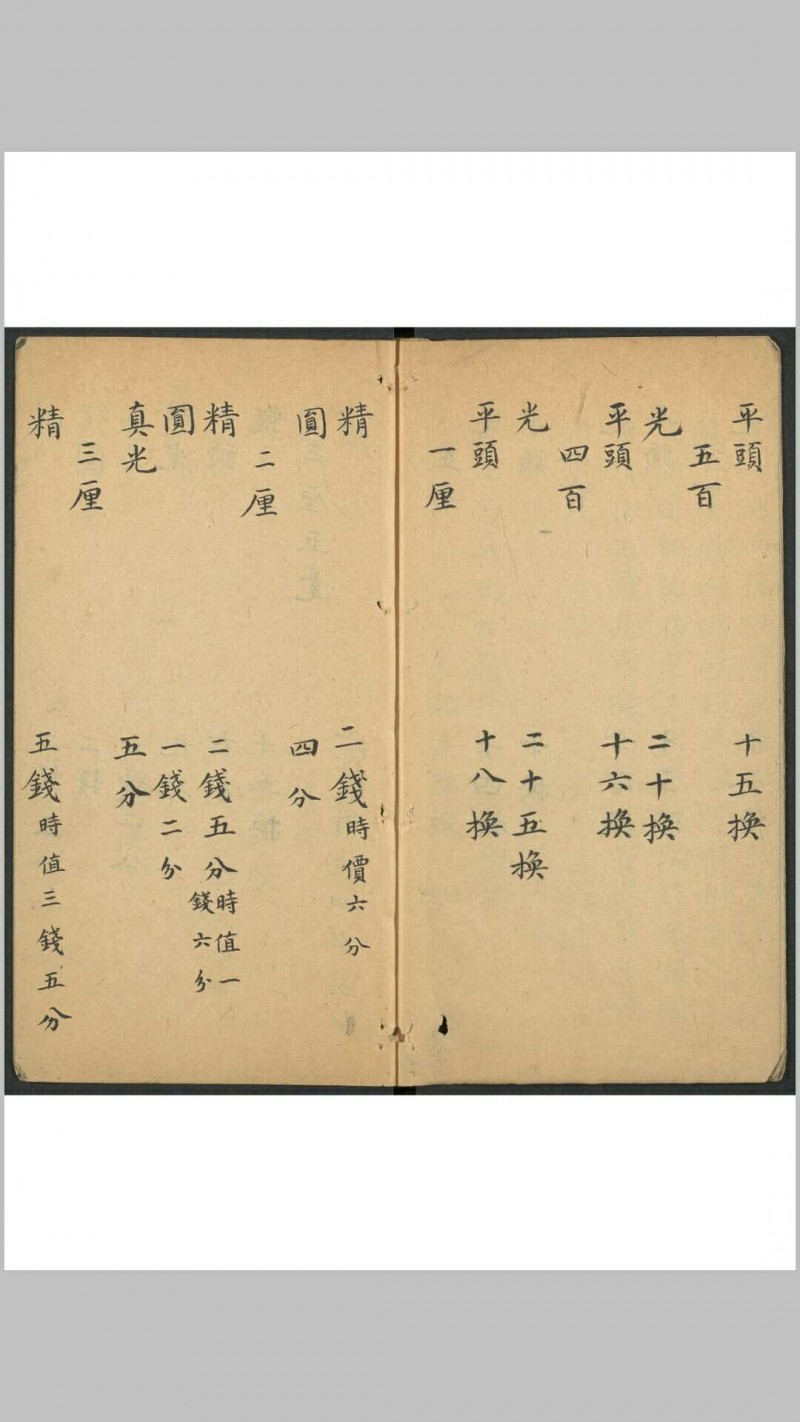 平頭 十五換
五百
光 二十換
平頭 十六換
四百
光 二十五換
平頭 十八換
一厘
精 二錢時價六分
圓 四分
二厘
精 二錢五分時值一錢六分
圓 一錢二分
真光 五分
三厘
精 五錢時值三錢五分